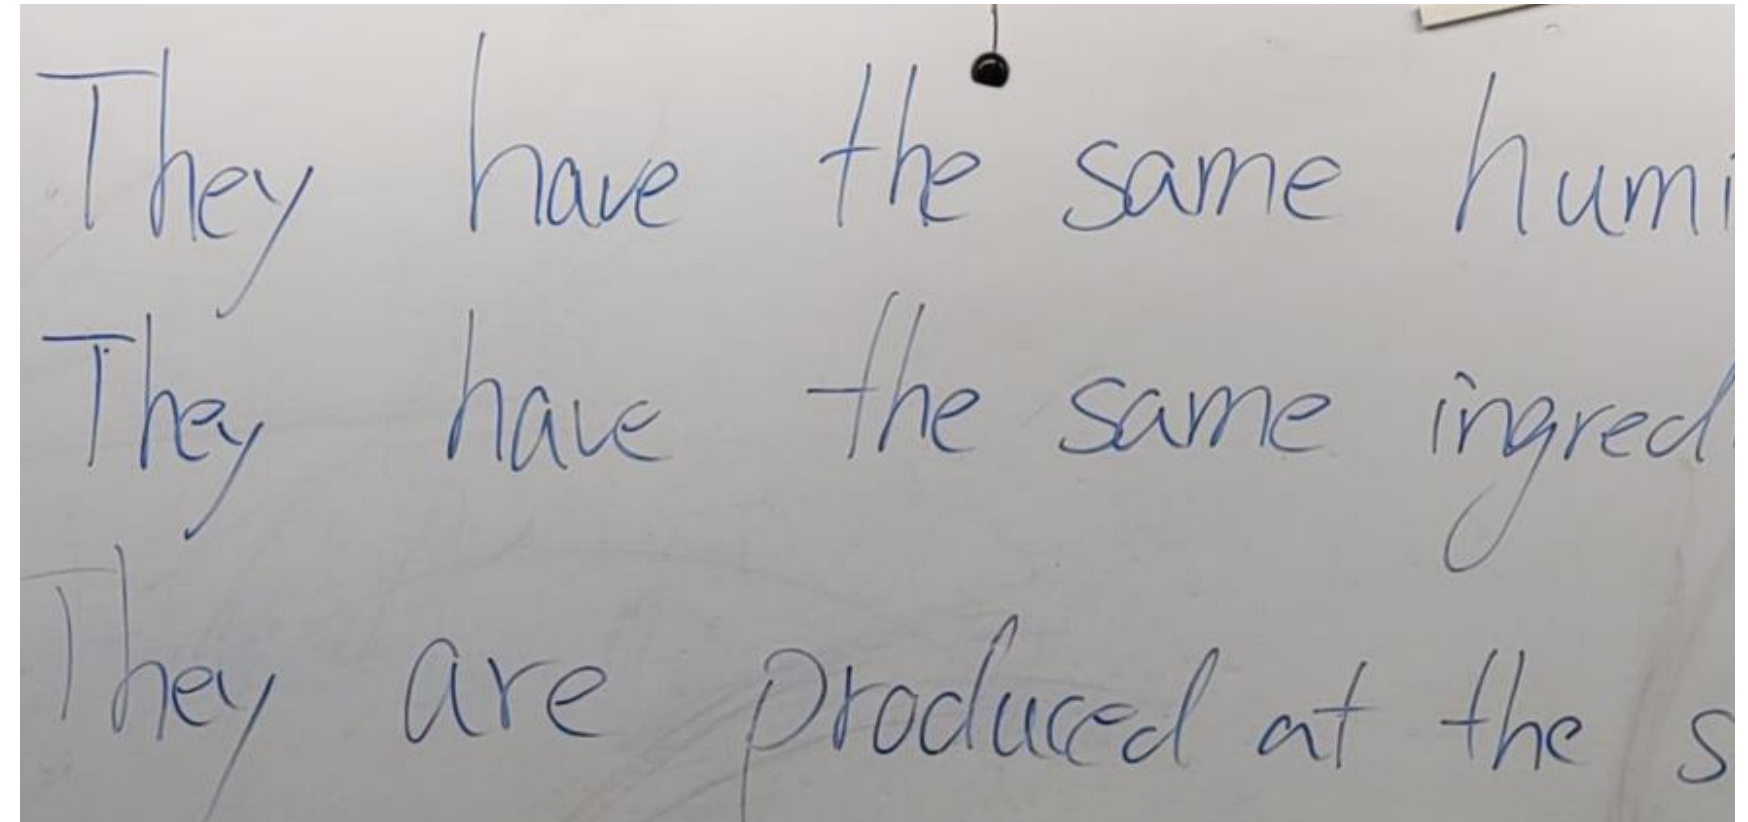 They have the same humi
They have the same ingred
They are produced at the s